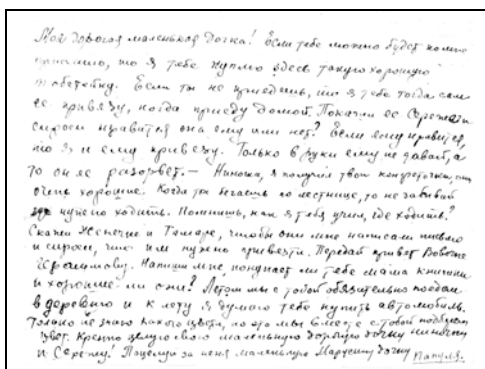 Моя дорогая маленькая дочка! Если тебе можно будет ко мне
то я тебе куплю здесь такую хорошую
тюбетейку. Если ты не приедешь, то я тебе тогда сам
ее привезу, когда приеду домой. Покажи ее Сереже и
спроси нравится она ему или нет? Если ему нравится,
то я и ему привезу. Только в руки ему не давай, а
то он ее разорвет. — Ниночка, я получил твои конфеточки, они
очень хорошие. Когда ты бегаешь по лестнице, то не забывай
где нужно ходить. Помнишь, как я тебя учил, где ходить?
Скажи Женечке и Тамаре, чтобы они мне написали письмо
и спроси, что им нужно привезти. Передай привет Вовочке
Напиши мне, покупает ли тебе мама книжки
и хорошие ли они? Летом мы с тобой обязательно поедем
в деревню и к лету я думаю тебе купить автомобиль.
Только не знаю какого цвета, но это мы вместе с тобой подберем
цвет. Крепко целую свою маленькую хорошую дочку Ниночку
и Сережу! Поцелуй за меня маленькую Марусину дочку
Папуля.